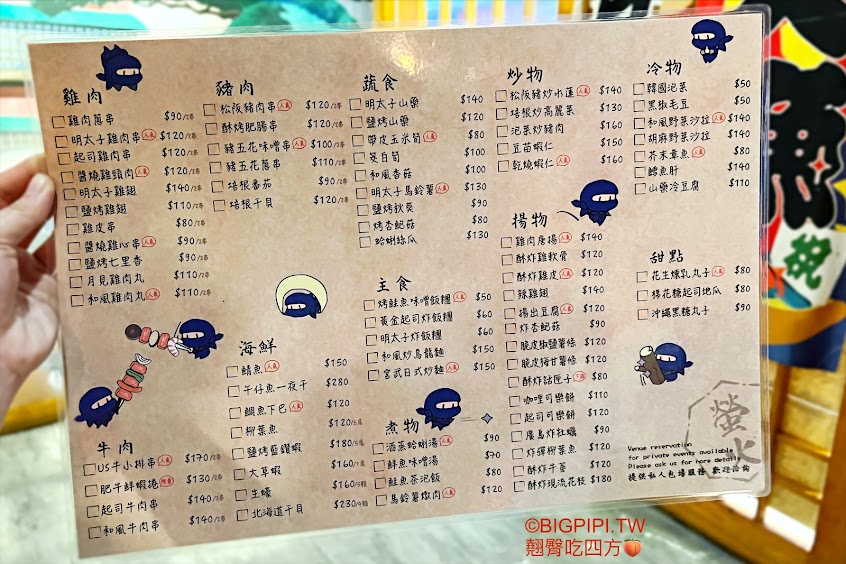 雞肉
雞肉蔥串 $90/2串
明太子雞肉串 人氣 $120/2串
起司雞肉串 $120/2串
醬燒雞頸肉 人氣 $120/2串
明太子雞翅 $140/2串
鹽烤雞翅 $110/2串
雞皮串 $80/2串
醬燒雞心串 人氣 $90/2串
鹽烤七里香 $90/2串
月見雞肉丸 $110/2串
和風雞肉丸 人氣 $110/2串
豬肉
松阪豬肉串 人氣 $120/2串
酥烤肥腸串 $120/2串
豬五花味噌串 人氣 $100/2串
豬五花蔥串 $110/2串
培根番茄 $90/2串
培根干貝 $120/2串
蔬食
明太子山藥 $140
鹽烤山藥 $120
帶皮玉米筍 人氣 $80
筊白筍 $100
和風香菇 $100
明太子馬鈴薯 人氣 $130
鹽烤秋葵 $90
烤杏鮑菇 $80
蛤蜊絲瓜 $130
炒物
松阪豬炒水蓮 人氣 $140
培根炒高麗菜 $130
泡菜炒豬肉 $160
豆苗蝦仁 $150
乾燒蝦仁 人氣 $160
冷物
韓國泡菜 $50
黑椒毛豆 $50
和風野菜沙拉 人氣 $140
胡麻野菜沙拉 $140
芥末章魚 人氣 $80
鱈魚肝 $140
山藥冷豆腐 $110
揚物
雞肉唐揚 人氣 $140
酥炸雞軟骨 $120
酥炸雞皮 人氣 $120
辣雞翅 $140
揚出豆腐 人氣 $120
炸杏鮑菇 $90
脆皮椒鹽薯條 $120
脆皮梅甘薯條 $120
酥炸話匣子 $80
咖哩可樂餅 $110
起司可樂餅 $120
廣島炸牡蠣 $90
炸彈柳葉魚 $120
酥炸干貝 $120
酥炸現流花枝 $180
甜點
花生煉乳丸子 人氣 $80
棉花糖起司地瓜 $80
沖繩黑糖丸子 $90
主食
烤鮭魚味噌飯糰 人氣 $50
黃金起司炸飯糰 $60
明太子炸飯糰 $60
和風炒烏龍麵 $150
宮武日式炒麵 人氣 $150
海鮮
鯖魚 人氣 $150
午仔魚一夜干 $280
鯛魚下巴 人氣 $120
柳葉魚 $120/5尾
鹽烤藍鑽蝦 $180/5尾
大草蝦 $160/1尾
生蠔 $160/5顆
北海道干貝 $230/4顆
煮物
酒蒸蛤蜊湯 人氣 $90
鮮魚味噌湯 $70
鮭魚茶泡飯 $80
馬鈴薯燉肉 人氣 $120
牛肉
US牛小排串 人氣 $170/2串
肥牛鮮蝦捲 $130/2串
起司牛肉串 $140/2串
和風牛肉串 $140/2串
螢火
Venue reservation
for private events available
Please ask us for more details
提供私人包場服務 歡迎洽詢
©BIGPIPI.TW
翹臀吃四方🍑